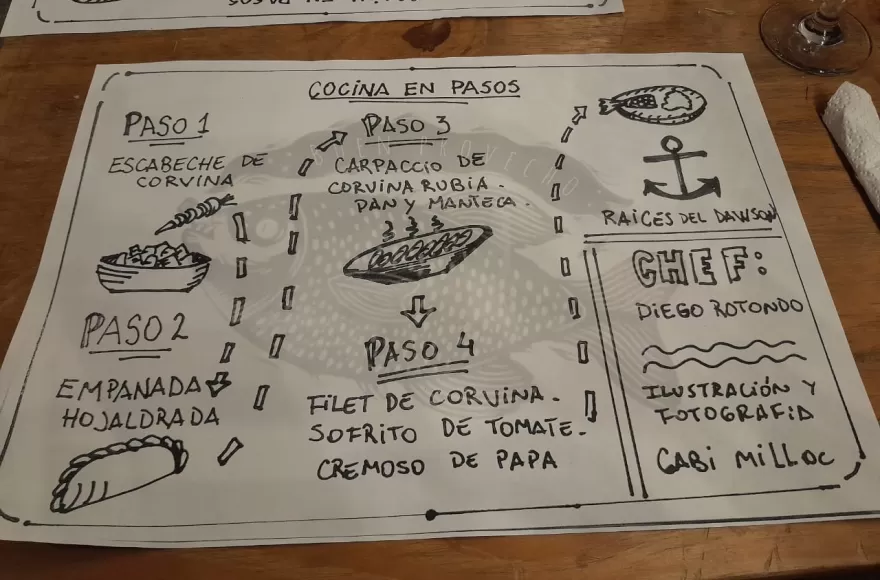 COCINA EN PASOS
PASO 1
ESCABECHE DE
CORVINA
PASO 2
EMPANADA
HOJALDRADA
PASO 3
CARPACCIO DE
CORVINA RUBIA.
PAN Y MANTECA.
PASO 4
FILET DE CORVINA.
SOFRITO DE TOMATE.
CREMOSO DE PAPA
RAICES DEL DAWSON
CHEF:
DIEGO ROTONDO
ILUSTRACIÓN Y
FOTOGRAFIA
GABI MILLOC
BUEN PROVECHO